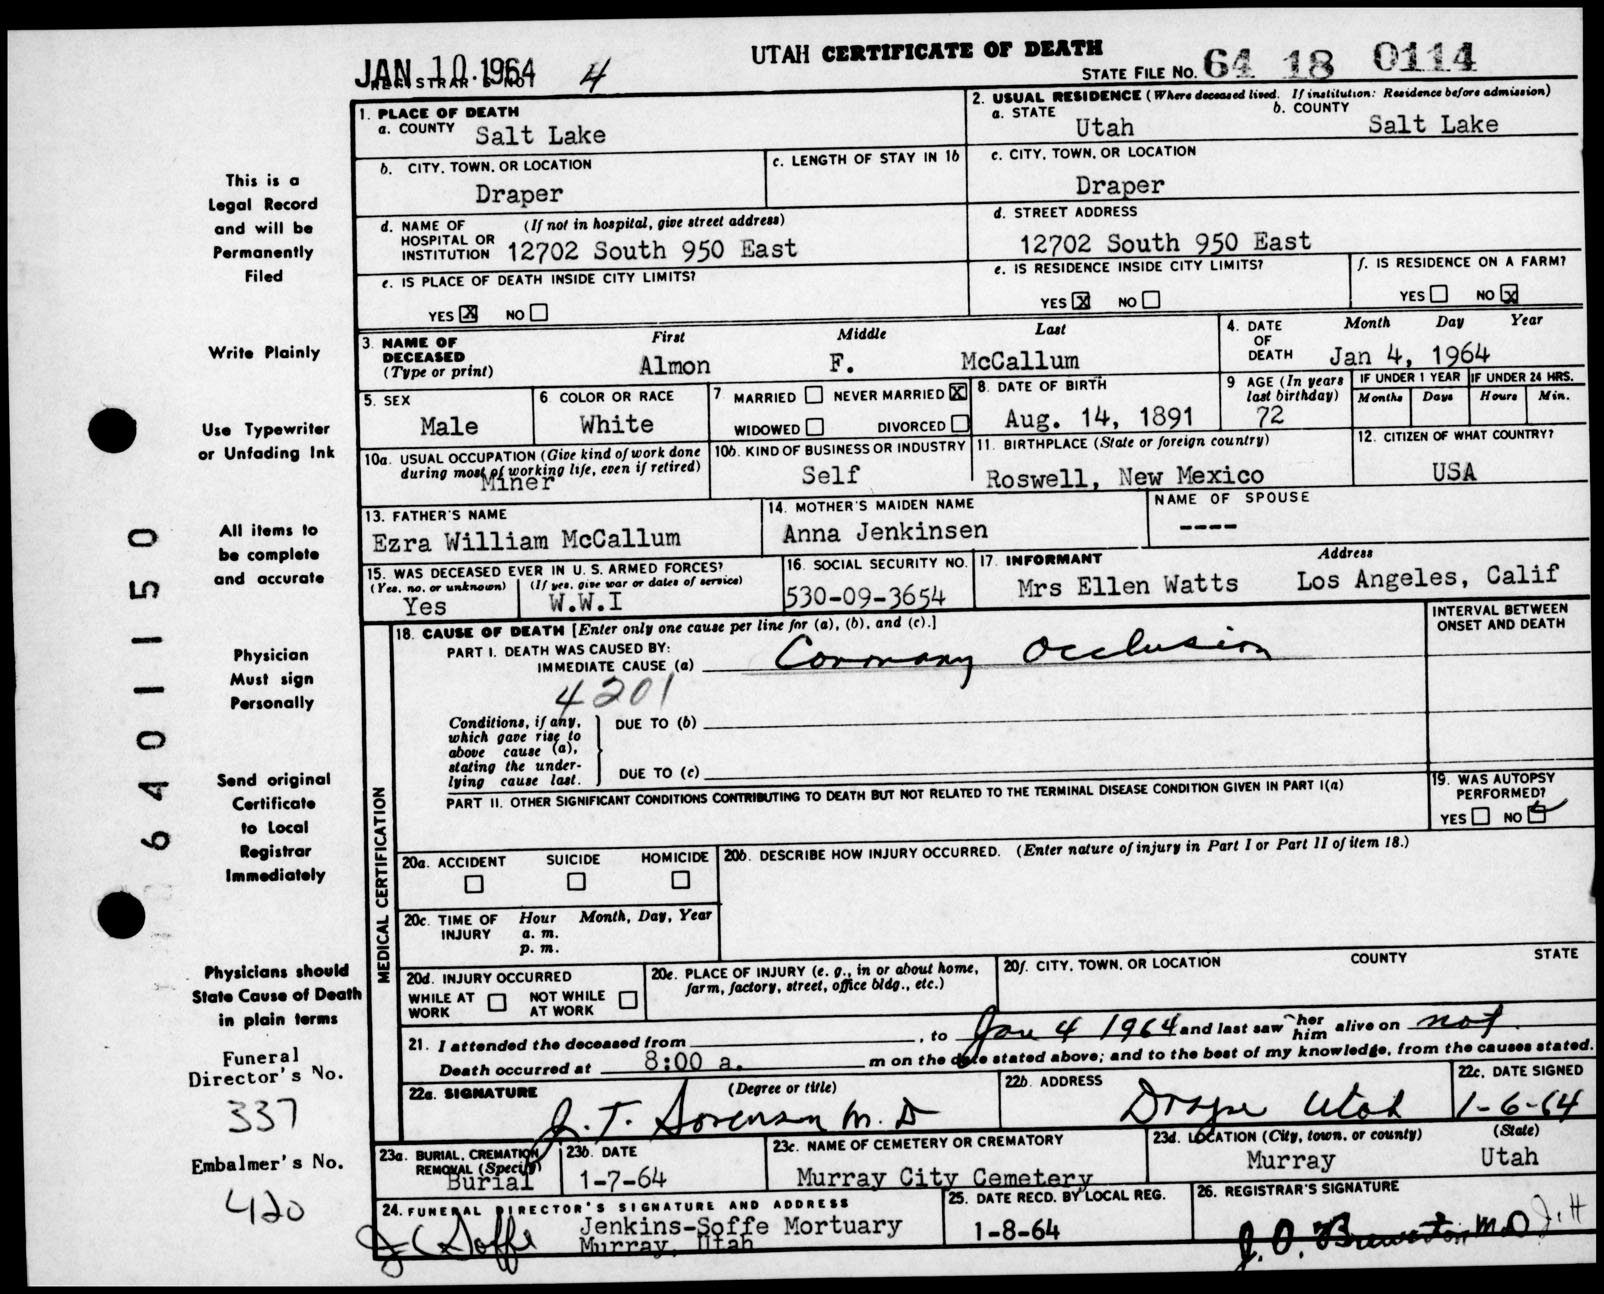 JAN 10.1964
REGISTRAR'S NO. 4
UTAH CERTIFICATE OF DEATH
STATE FILE NO. 64 18 0114
1. PLACE OF DEATH
a. COUNTY Salt Lake
2. USUAL RESIDENCE (Where deceased lived. If institution: Residence before admission)
a. STATE Utah b. COUNTY Salt Lake
b. CITY, TOWN, OR LOCATION Draper
c. LENGTH OF STAY IN 1b
c. CITY, TOWN, OR LOCATION
Draper
d. NAME OF HOSPITAL OR INSTITUTION (If not in hospital, give street address)
12702 South 950 East
d. STREET ADDRESS
12702 South 950 East
e. IS PLACE OF DEATH INSIDE CITY LIMITS?
YES X NO
e. IS RESIDENCE INSIDE CITY LIMITS?
YES X NO
f. IS RESIDENCE ON A FARM?
YES NO X
3. NAME OF DECEASED (Type or print)
First Middle Last
Almon F. McCallum
4. DATE OF DEATH Month Day Year
Jan 4, 1964
5. SEX
Male
6 COLOR OR RACE
White
7 MARRIED NEVER MARRIED X
WIDOWED DIVORCED
8. DATE OF BIRTH
Aug. 14, 1891
9 AGE (In years last birthday)
72
IF UNDER 1 YEAR
Months Days
IF UNDER 24 HRS.
Hours Min.
10a. USUAL OCCUPATION (Give kind of work done during most of working life, even if retired)
Miner
10b. KIND OF BUSINESS OR INDUSTRY
Self
11. BIRTHPLACE (State or foreign country)
Roswell, New Mexico
12. CITIZEN OF WHAT COUNTRY?
USA
13. FATHER'S NAME
Ezra William McCallum
14. MOTHER'S MAIDEN NAME
Anna Jenkinsen
NAME OF SPOUSE
----
15. WAS DECEASED EVER IN U. S. ARMED FORCES?
(Yes, no, or unknown) (If yes, give war or dates of service)
Yes W.W.I
16. SOCIAL SECURITY NO.
530-09-3654
17. INFORMANT Address
Mrs Ellen Watts Los Angeles, Calif
MEDICAL CERTIFICATION
18. CAUSE OF DEATH [Enter only one cause per line for (a), (b), and (c).]
INTERVAL BETWEEN ONSET AND DEATH
PART I. DEATH WAS CAUSED BY:
IMMEDIATE CAUSE (a) Coronary Occlusion
4201
Conditions, if any, which gave rise to above cause (a), stating the underlying cause last.
DUE TO (b)
DUE TO (c)
PART II. OTHER SIGNIFICANT CONDITIONS CONTRIBUTING TO DEATH BUT NOT RELATED TO THE TERMINAL DISEASE CONDITION GIVEN IN PART I(a)
19. WAS AUTOPSY PERFORMED?
YES NO
20a. ACCIDENT SUICIDE HOMICIDE
20b. DESCRIBE HOW INJURY OCCURRED. (Enter nature of injury in Part I or Part II of item 18.)
20c. TIME OF INJURY Hour Month, Day, Year
a. m.
p. m.
20d. INJURY OCCURRED
WHILE AT WORK NOT WHILE AT WORK
20e. PLACE OF INJURY (e. g., in or about home, farm, factory, street, office bldg., etc.)
20f. CITY, TOWN, OR LOCATION COUNTY STATE
21. I attended the deceased from , to Jan 4 1964 and last saw her him alive on not.
Death occurred at 8:00 a. m on the date stated above; and to the best of my knowledge, from the causes stated.
22a. SIGNATURE (Degree or title)
J. T. Sorenson M. D
22b. ADDRESS
Draper Utah
22c. DATE SIGNED
1-6-64
23a. BURIAL, CREMATION, REMOVAL (Specify)
Burial
23b. DATE
1-7-64
23c. NAME OF CEMETERY OR CREMATORY
Murray City Cemetery
23d. LOCATION (City, town, or county) (State)
Murray Utah
24. FUNERAL DIRECTOR'S SIGNATURE AND ADDRESS
Soffe Jenkins-Soffe Mortuary
Murray, Utah
25. DATE RECD. BY LOCAL REG.
1-8-64
26. REGISTRAR'S SIGNATURE
J. O. Brewerton M.D J.H
This is a
Legal Record
and will be
Permanently
Filed
Write Plainly
Use Typewriter
or Unfading Ink
All items to
be complete
and accurate
Physician
Must sign
Personally
Send original
Certificate
to Local
Registrar
Immediately
Physicians should
State Cause of Death
in plain terms
Funeral
Director's No.
337
Embalmer's No.
420
6401150